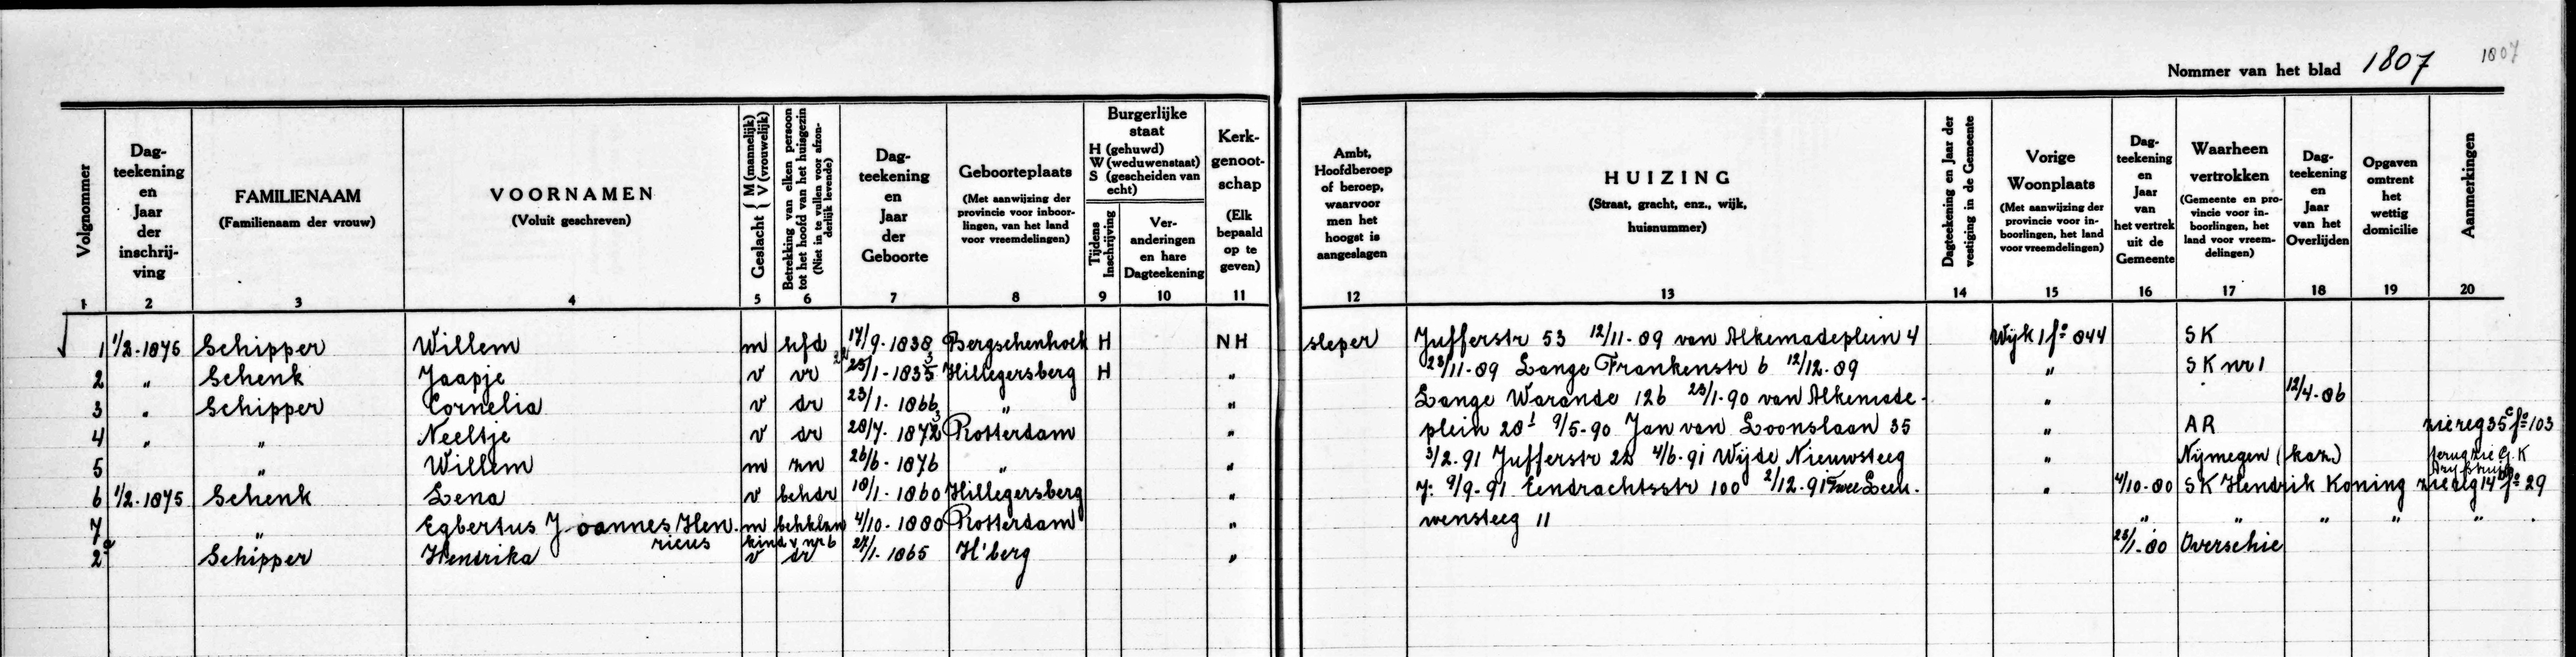 Nommer van het blad 1807 1807
Volgnommer
Dag-
teekening
en
Jaar
der
inschrij-
ving
FAMILIENAAM
(Familienaam der vrouw)
VOORNAMEN
(Voluit geschreven)
Geslacht { M (mannelijk) V (vrouwelijk)
Betrekking van elken persoon
tot het hoofd van het huisgezin
(Niet in te vullen voor afzon-
derlijk levende)
Dag-
teekening
en
Jaar
der
Geboorte
Geboorteplaats
(Met aanwijzing der
provincie voor inboor-
lingen, van het land
voor vreemdelingen)
Burgerlijke
staat
H (gehuwd)
W (weduwenstaat)
S (gescheiden van
echt)
Tijdens
Inschrijving
Ver-
anderingen
en hare
Dagteekening
Kerk-
genoot-
schap
(Elk
bepaald
op te
geven)
Ambt,
Hoofdberoep
of beroep,
waarvoor
men het
hoogst is
aangeslagen
HUIZING
(Straat, gracht, enz., wijk,
huisnummer)
Dagteekening en Jaar der
vestiging in de Gemeente
Vorige
Woonplaats
(Met aanwijzing der
provincie voor in-
boorlingen, het land
voor vreemdelingen)
Dag-
teekening
en
Jaar
van
het vertrek
uit de
Gemeente
Waarheen
vertrokken
(Gemeente en pro-
vincie voor in-
boorlingen, het
land voor vreem-
delingen)
Dag-
teekening
en
Jaar
van het
Overlijden
Opgaven
omtrent
het
wettig
domicilie
Aanmerkingen
1 2 3 4 5 6 7 8 9 10 11 12 13 14 15 16 17 18 19 20
1 1/2-1875 Schipper Willem m hfd 17/9-1838 Bergschenhoek H NH sleper Jufferstr 53 12/11-89 van Alkemadeplein 4 Wijk 1 fo 844 SK
2 " Schenk Jaapje v vr 25/1-1835 Hillegersberg H " 23/11-89 Lange Frankenstr 6 12/12-89 " SK nr 1
3 " Schipper Cornelia v dr 23/1-1866 " " Lange Warande 126 23/1-90 van Alkemade- " 12/4-86
4 " " Neeltje v dr 28/7-1872 Rotterdam " plein 28 1 9/5-90 Jan van Loonslaan 35 " AR zie reg 35 c fo 103
5 " Willem m zn 26/6-1876 " " 3/2-91 Jufferstr 22 4/6-91 Wijde Nieuwsteeg " Nijmegen (kaz.) terug zie G.K
6 1/2-1875 Schenk Lena v behdr 18/1-1860 Hillegersberg " 7: 9/9-91 Eendrachtsstr 100 2/12-91 Twee Leeu- " 4/10-80 SK Hendrik Koning zie alg 14 fo 29
7 " Egbertus Joannes Hen- m behklzn 4/10-1880 Rotterdam " wensteeg 11 " " " " "
ricus kind v nr 6
2a Schipper Hendrika v dr 27/1-1865 H'berg " 23/1-80 Overschie